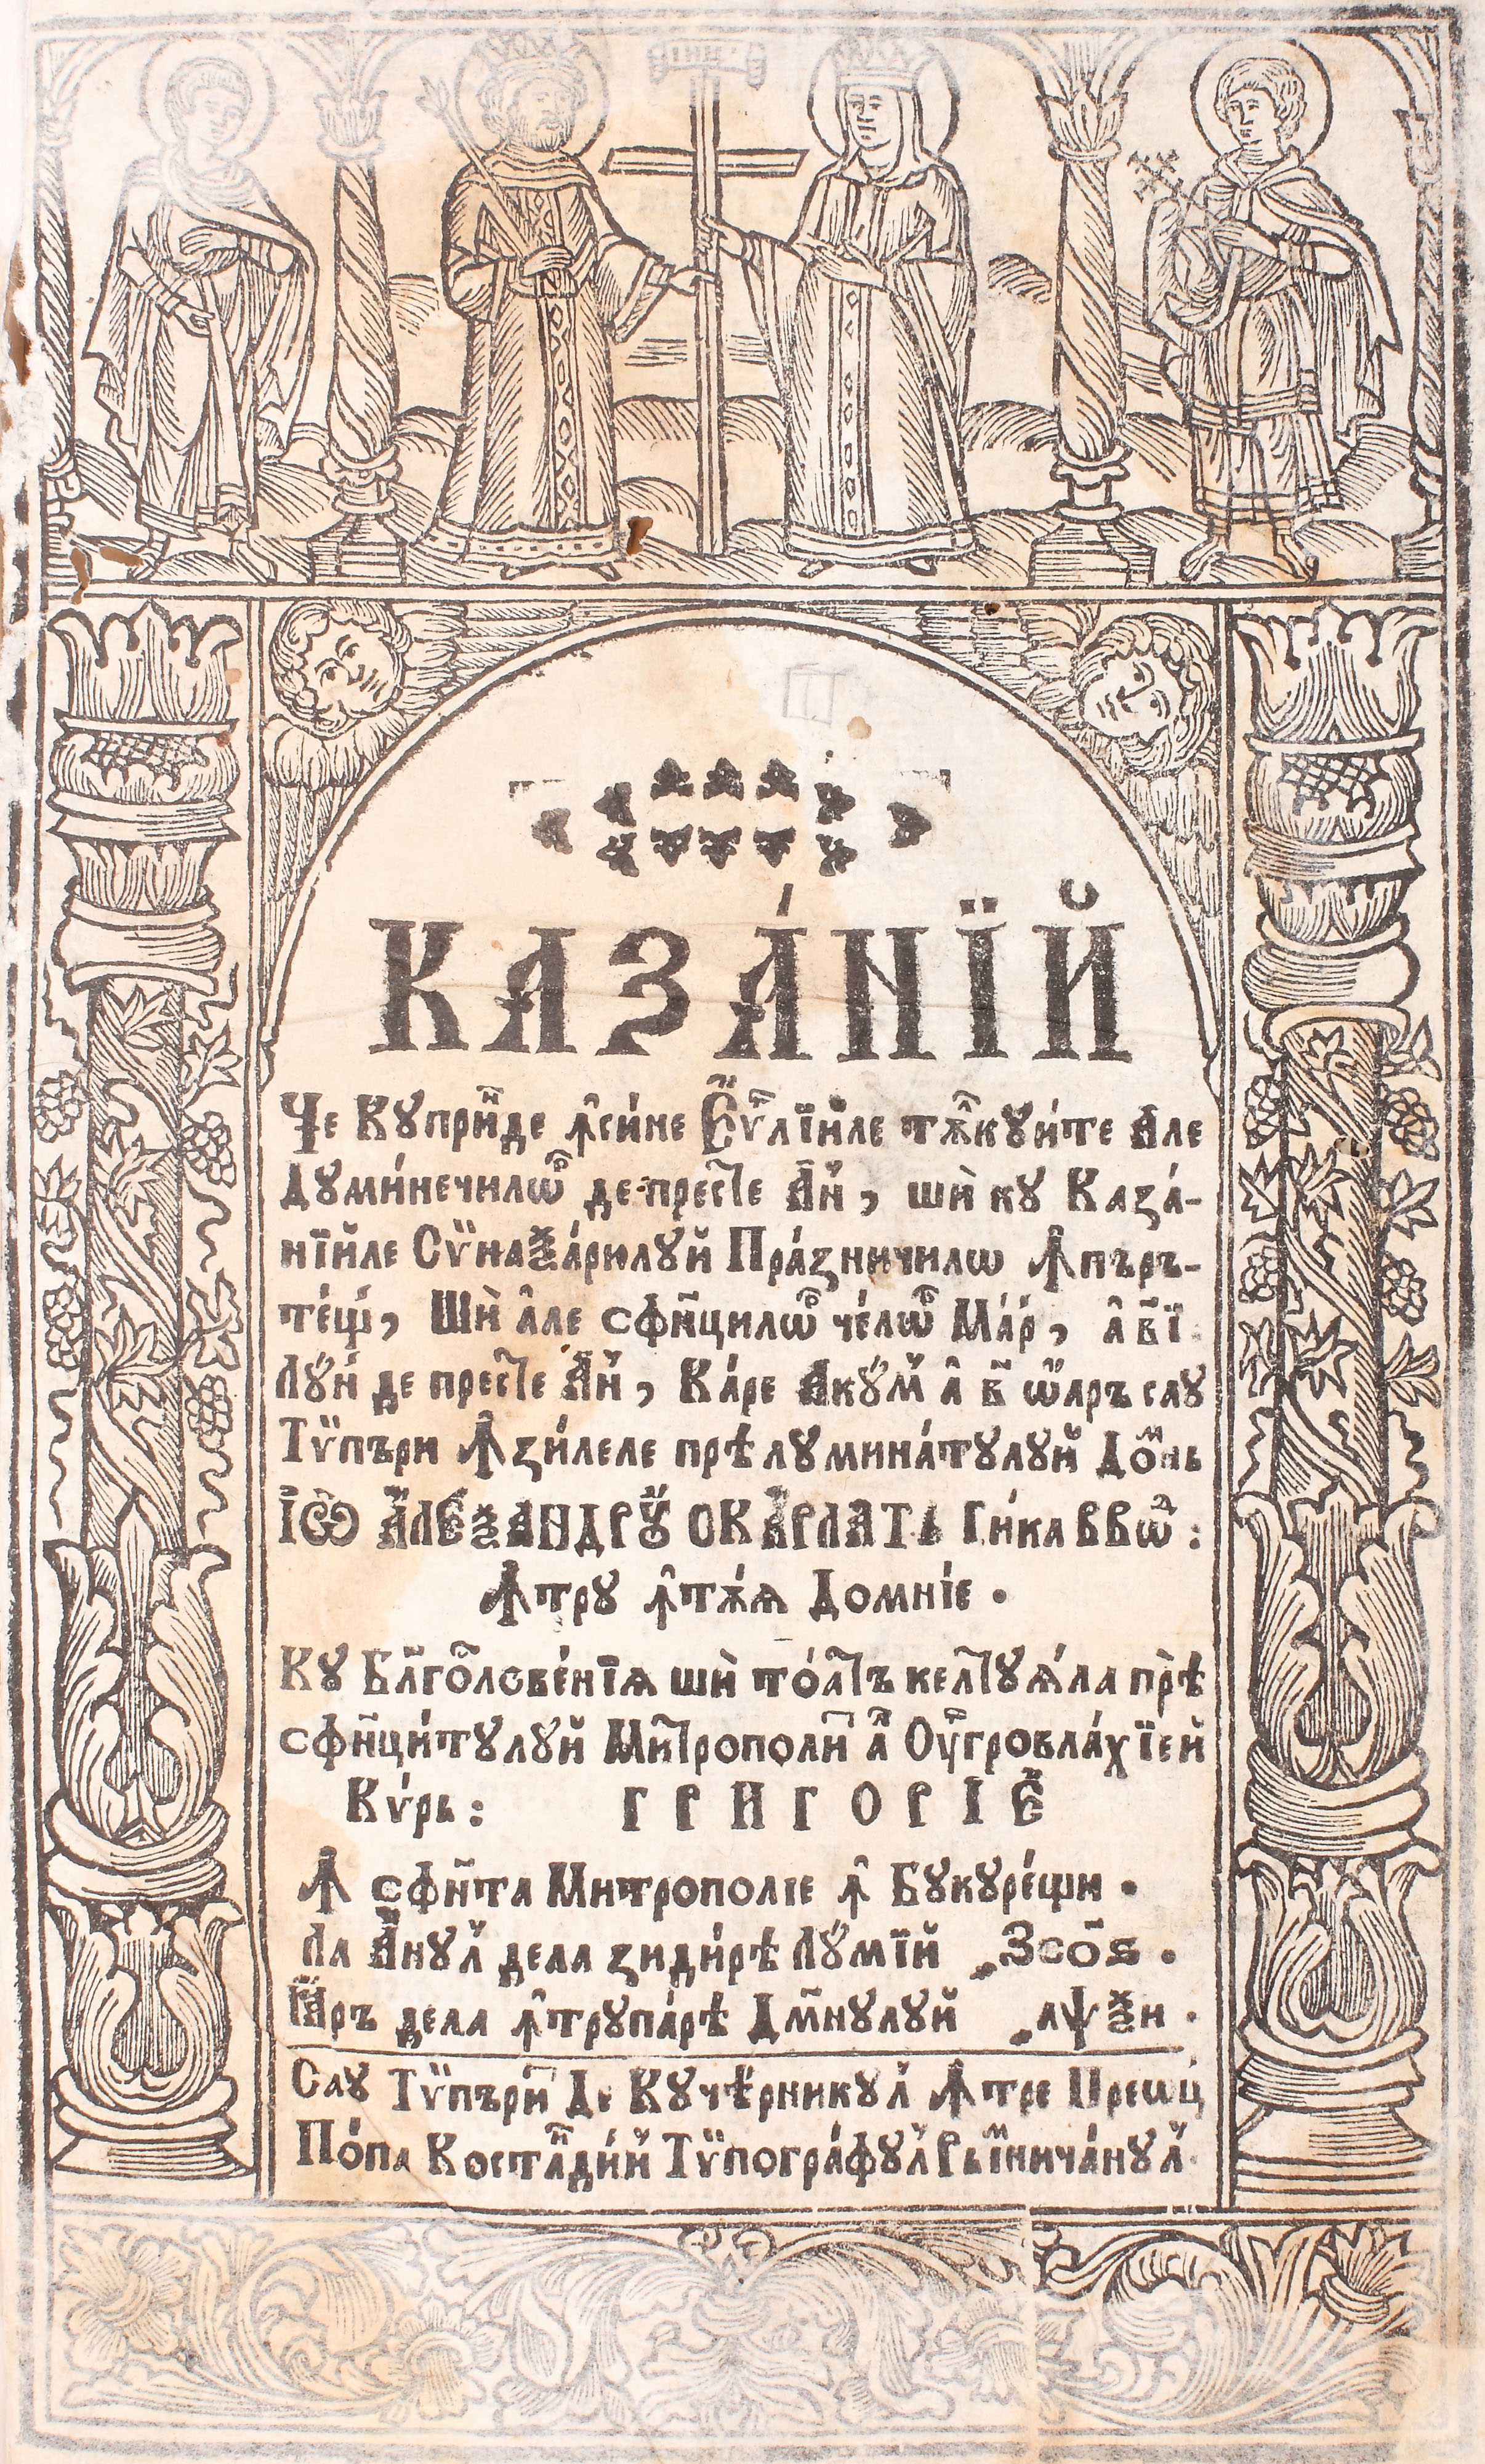 КАЗА́НЇЙ
Че Кꙋпри́нде ꙟ̂си́не Еѵⷢ҇лїиле тѫ̑лкꙋи́те А́ле
Дꙋми́нечилѡⷬ҇ де престе А́н꙼, шѝ кꙋ Каза́-
нїиле Сѷнаѯа́рюлꙋй Пра́зничилѡ Ꙟпъръ-
те́щй, Шѝ а̂ле сфи҃нцилѡⷬ҇ че́лѡⷬ҇ Ма́р, а̂ в҃ї
Лꙋ́й де престе А́н꙼, Ка́ре Акꙋ́м꙼ а̂ в҃ ѡ҆аръ саꙋ
Тѷпъри Ꙟзи́леле прѣлꙋмина́тꙋлꙋй До́мнь
ІѠ҃ А҆ЛЕѮАНДРꙊ СКАРЛАТЬ Ги́ка ВВѡⷣ:
Ꙟтрꙋ ꙟ̂тѫ́ѧ Домні́е.
Кꙋ Бл҃гⷭ҇ове́нїѧ шѝ тоатъ келтꙋѧ́ла прѣ
сфи҃нци́тꙋлꙋй Митрополи́т а҆л Оу҆гровла́хїей
Ки́рь: ГРИГОРІЕ
Ꙟ сфн҃та Митрополіе ꙟ̂ Бꙋкꙋре́щи.
Ла А҆нꙋл꙼ дела зиди́рѣ Лꙋ́мїй ҂ЗСО҃Ѕ.
Іа́ръ дела ꙟ̂трꙋпа́рѣ Дм҃нꙋлꙋй ҂аѱѯи.
Саꙋ Тѷпъри́т Де Кꙋче́рникꙋл꙼ Ꙟтре Преѡц
По́па Костанди́н Тѷпогра́фꙋл꙼ Рыⷨничанꙋл꙼.